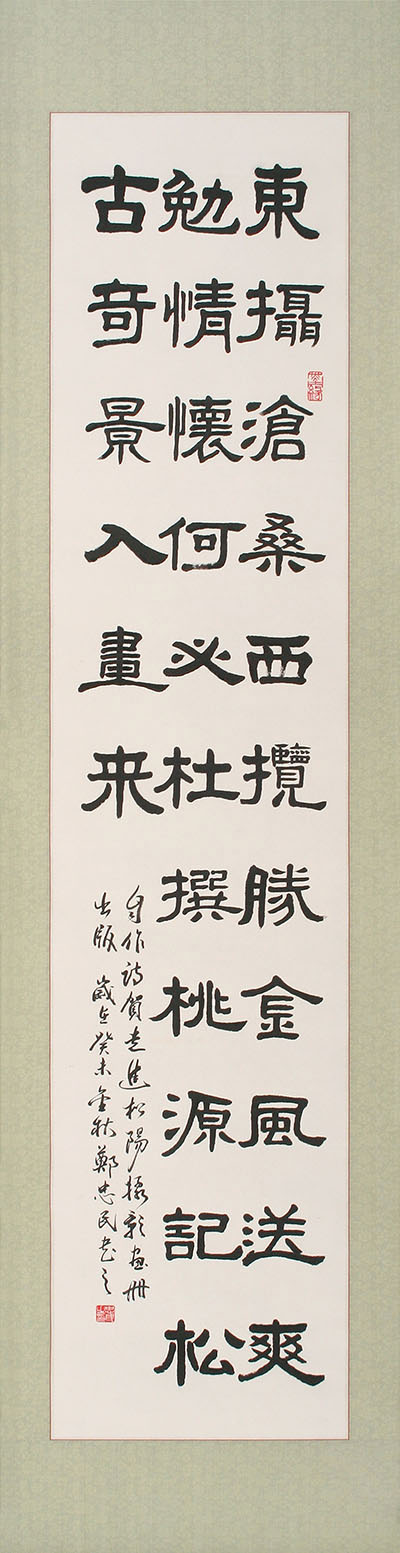 東攝滄桑西攬勝金風送爽
勉情懷何必杜撰桃源記松
古奇景入畫来
自作詩賀走進松陽攝影画册
出版 歲在癸未金秋鄭忠民书之